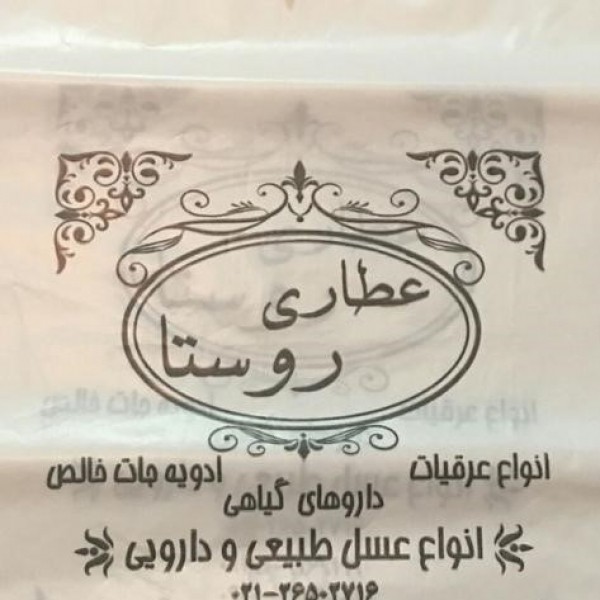 عطاری
روستا
انواع عرقیات ادویه جات خالص
داروهای گیاهی
انواع عسل طبیعی و دارویی
۰۲۱-۲۶۵۰۲۷۱۶